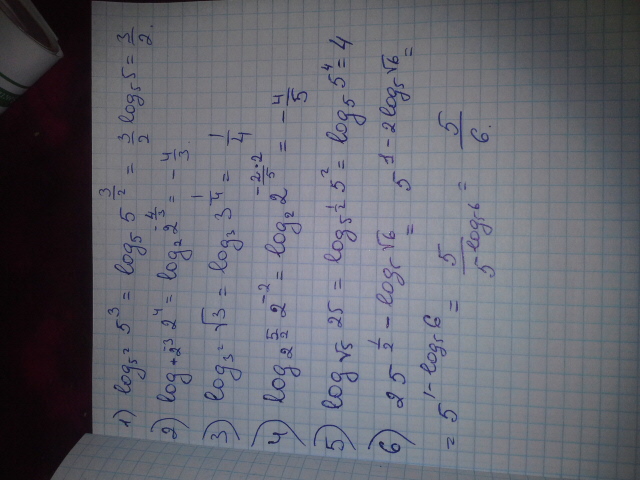 1) log_{5^2} 5^3 = log_5 5^{3/2} = 3/2 log_5 5 = 3/2.
2) log_{+2^{-3}} 2^4 = log_2 2^{-4/3} = -4/3.
3) log_{3^2} √3 = log_3 3^{1/4} = 1/4
4) log_{2^{5/2}} 2^{-2} = log_2 2^{-2·2/5} = -4/5
5) log_{√5} 25 = log_{5^{1/2}} 5^2 = log_5 5^4 = 4
6) 25^{1/2 - log_5 √6} = 5^{1 - 2log_5 √6} =
= 5^{1 - log_5 6} = 5/5^{log_5 6} = 5/6.